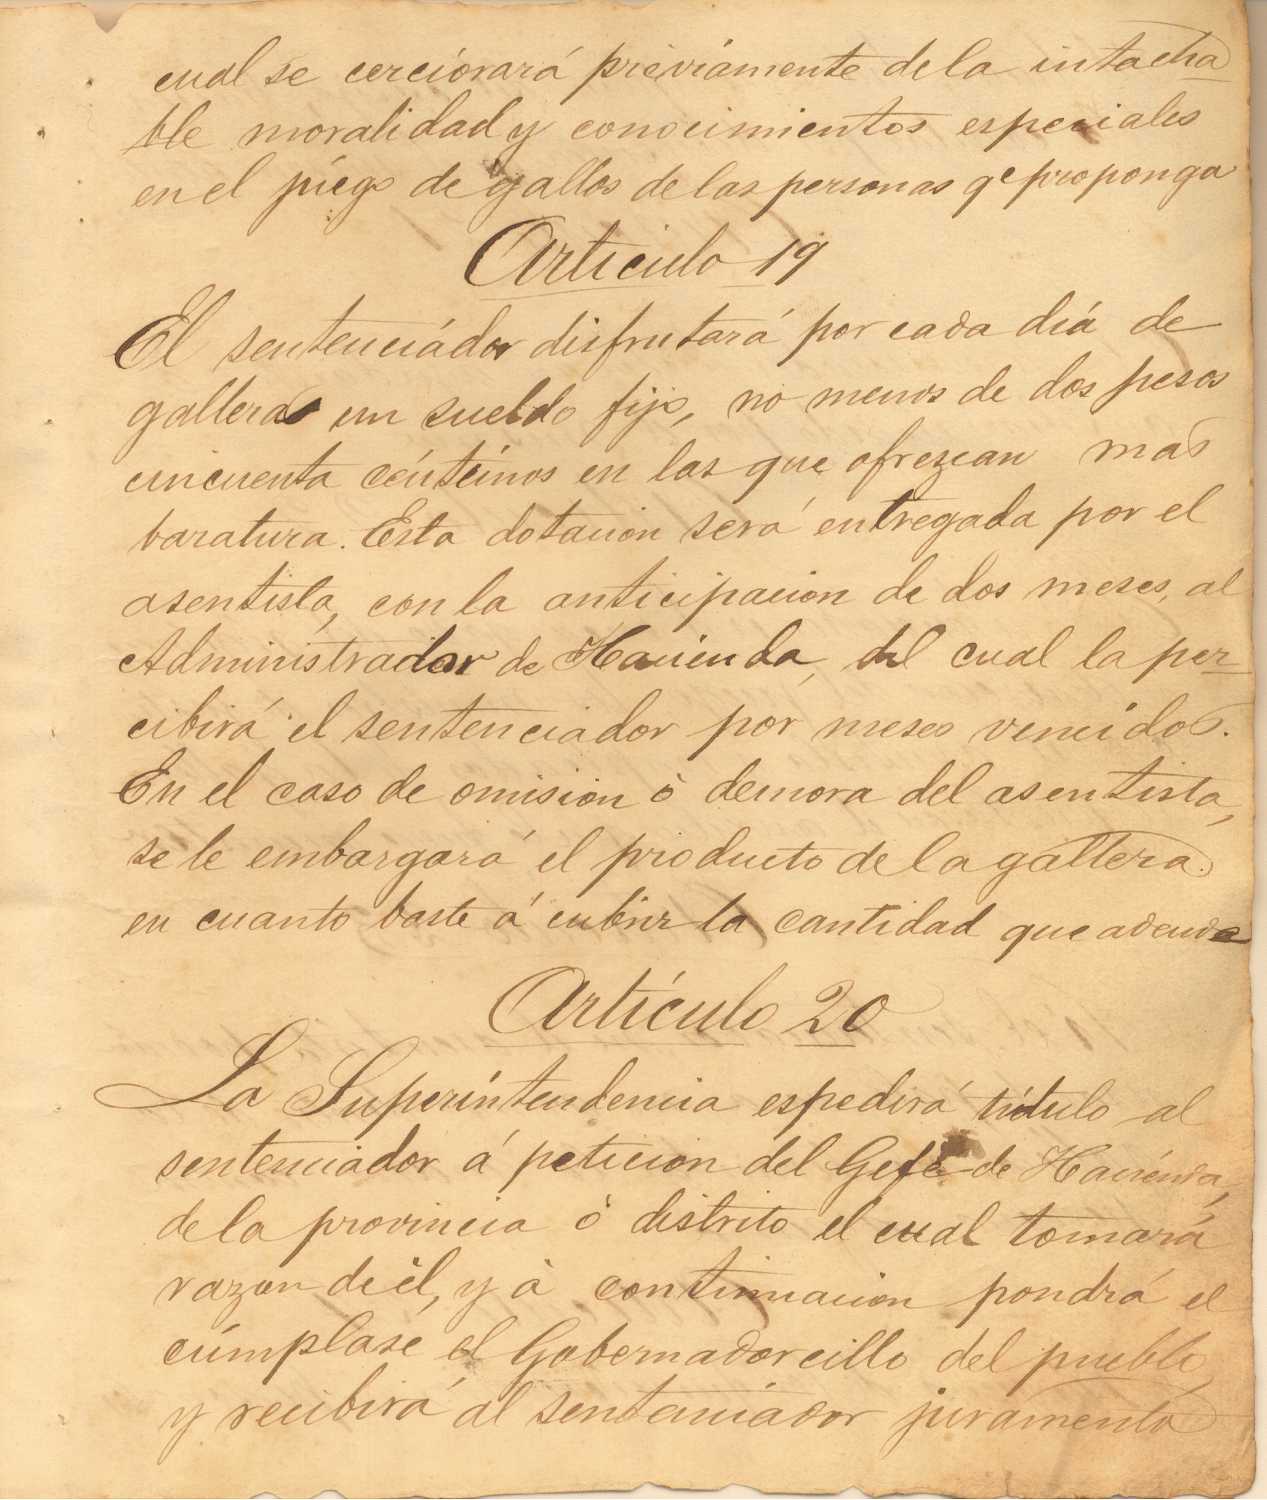 cual se cerciorará préviamente de la intacha
ble moralidad y conocimientos especiales
en el juego de gallos de las personas qe proponga
Articulo 19
El sentenciádor disfrutará por cada diá de
gallera un sueldo fijo, no menos de dos pesos
cincuenta céntimos en las que ofrezcan mas
baratura. Esta dotacion será entregada por el
asentista, con la anticipacion de dos meses, al
Administrador de Hacienda, del cual la per-
cibirá el sentenciador por meses vencidos.
En el caso de omision ò demora del asentista,
se le embargará el producto de la gallera
en cuanto baste á cubrir la cantidad que adeude
Artículo 20
La Superintendencia espedirá título al
sentenciador á peticion del Gefe de Hacienda,
de la provincia ò distrito el cual tomará
razon de él, y à continuacion pondrá el
cúmplase el Gobernadorcillo del pueblo
y recibirá al sentenciador juramento